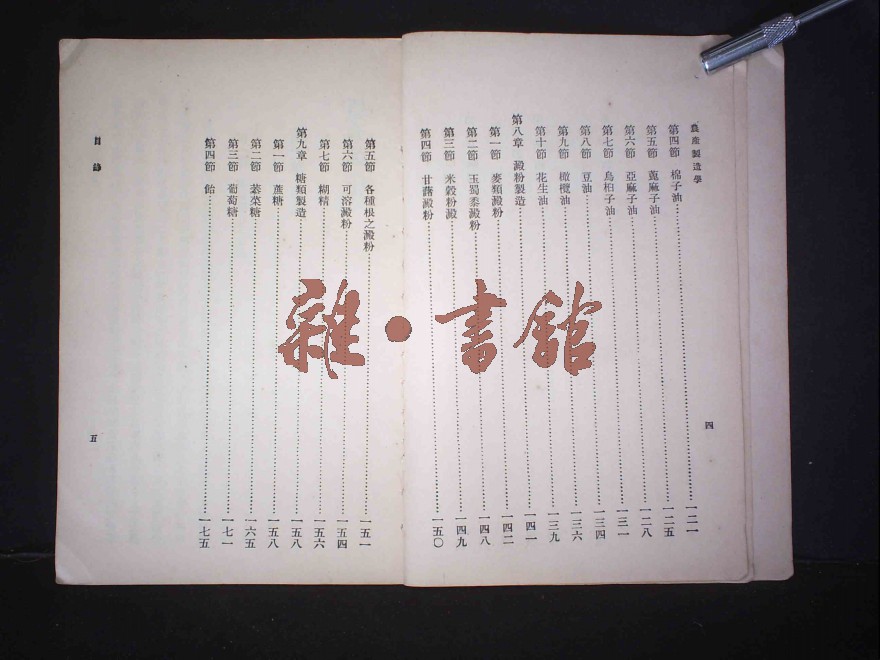 農產製造學
第四節 棉子油 一二一
第五節 蓖麻子油 一二五
第六節 亞麻子油 一二八
第七節 烏桕子油 一三一
第八節 豆油 一三四
第九節 橄欖油 一三六
第十節 花生油 一三九
第八章 澱粉製造 一四一
第一節 麥類澱粉 一四二
第二節 玉蜀黍澱粉 一四八
第三節 米穀粉澱 一四九
第四節 甘藷澱粉 一五〇
四
第五節 各種根之澱粉 一五一
第六節 可溶澱粉 一五四
第七節 糊精 一五六
第九章 糖類製造 一五八
第一節 蔗糖 一五八
第二節 菾菜糖 一六五
第三節 葡萄糖 一七一
第四節 飴 一七五
目錄
五
雜·書館